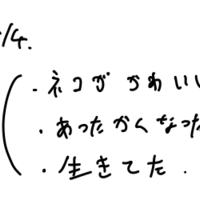 /4.
・ネコが かわいい
・あったかくなった
・生きてた.